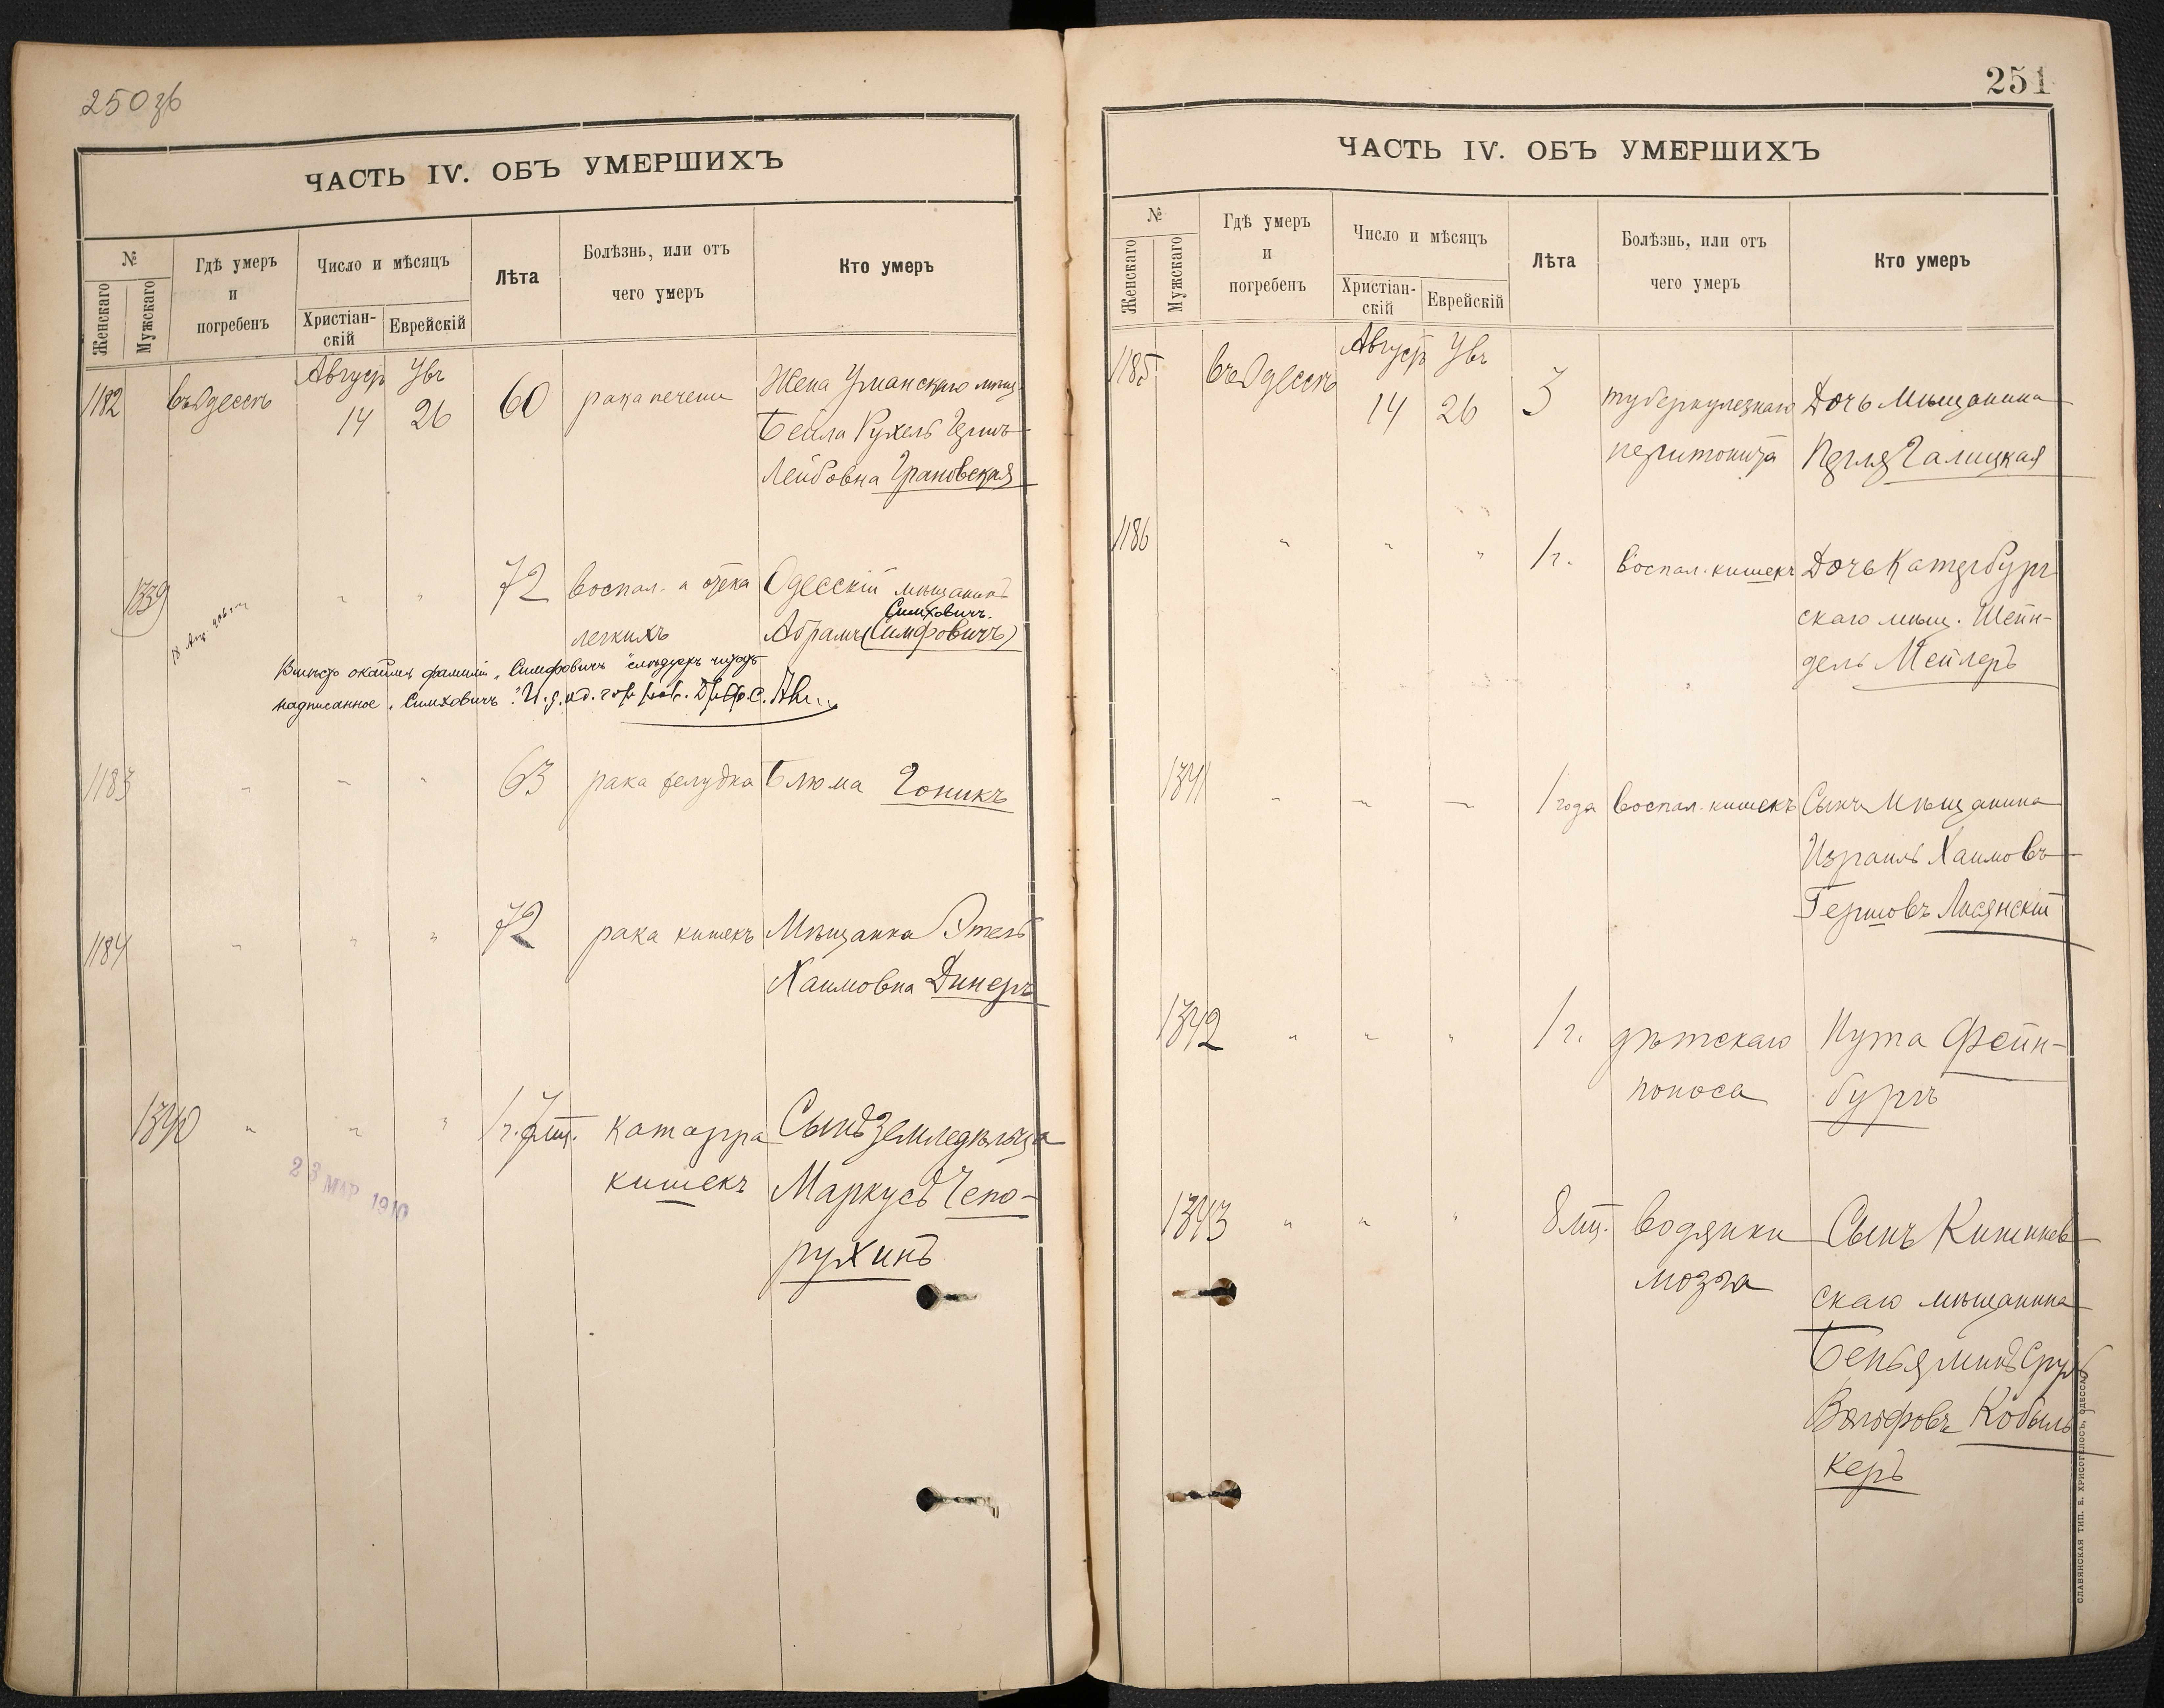 250 зв
ЧАСТЬ IV. ОБЪ УМЕРШИХЪ
№
Женскаго
Мужскаго
Гдѣ умеръ
и
погребенъ
Число и мѣсяцъ
Христіан-
скій
Еврейскій
Лѣта
Болѣзнь, или отъ
чего умеръ
Кто умеръ
Август
1182 въ Одессѣ 14 26 60 рака печени Жена Уманскаго мѣщ.
Бейла Рухель Герш
Лейбовна Грановская
1339 72 воспал. и отека Одесскій мѣщанинъ
Симховичъ.
легкихъ Абрамъ (Симфовичъ)
Вмѣсто фамиліи „Симфовичъ" слѣдуетъ читать
надписанное „Симховичъ".
1183 " " " 63 рака желудка Блюма Гоникъ
1184 " " " 72 рака кишекъ Мѣщанка Этель
Хаимовна Динеръ
1340 " " " 1 г. 7 мѣс. катарра Сынъ земледѣльца
кишекъ Маркусъ Чепо-
рухинъ
23 МАР 1910
251
ЧАСТЬ IV. ОБЪ УМЕРШИХЪ
№
Женскаго
Мужскаго
Гдѣ умеръ
и
погребенъ
Число и мѣсяцъ
Христіан-
скій
Еврейскій
Лѣта
Болѣзнь, или отъ
чего умеръ
Кто умеръ
Август
1185 въ Одессѣ 14 26 3 туберкулезнаго Дочь Мѣщанина
перитонита Перля Галицкая
1186 " " " 1 г. Воспал. кишекъ Дочь Катербург
скаго мѣщ. Шейн-
дель Мейлеръ
1341 " " " 1 года воспал. кишекъ Сынъ Мѣщанина
Израиль Хаимовъ
Гершовъ Лисянскій
1342 " " " 1 г. дѣтскаго Нута Фейн-
поноса бургъ
1343 " " " 8 мѣс. водянки Сынъ Кишинев
мозга скаго мѣщанина
Беньяминъ Сруль
Вольфовъ Кобыль
керъ
СЛАВЯНСКАЯ ТИП. Е. ХРИСОГЕЛОСЪ, ОДЕССА.